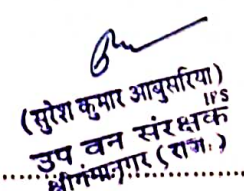 (सुरेश कुमार आबुसरिया)
IFS
उप वन संरक्षक
श्रीगंगानगर (राज.)